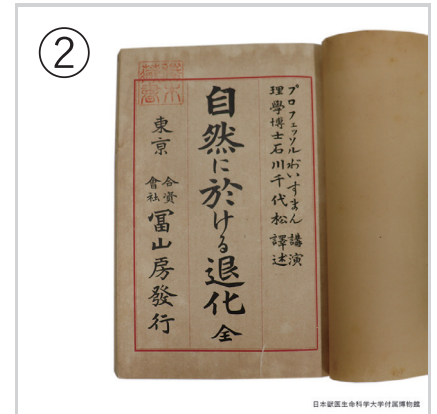 ②
プロフェッソルわいすまん講演
理學博士石川千代松譯述
自然に於ける退化全
東京
合資
會社
冨山房發行
日本獣医生命科学大学付属博物館